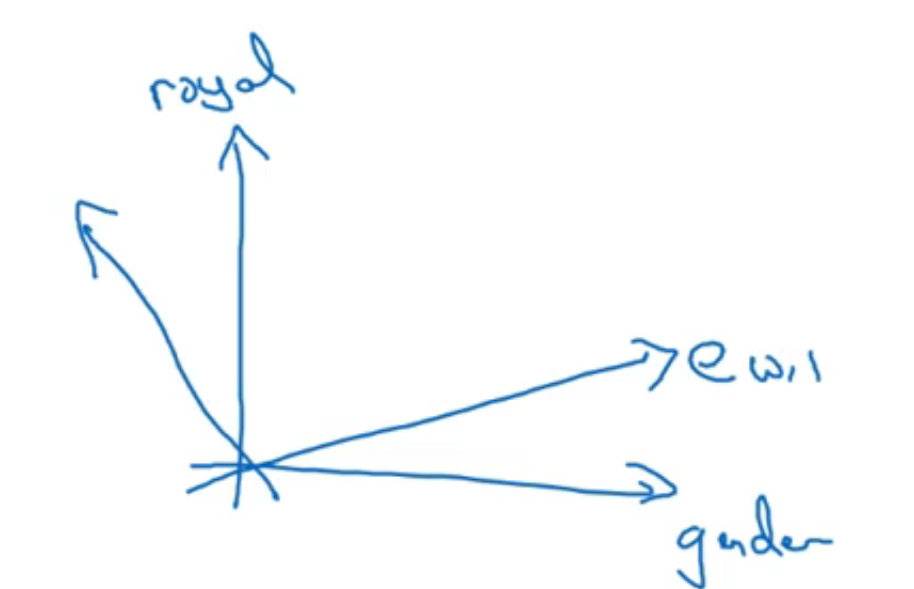 royal
e w,1
gender